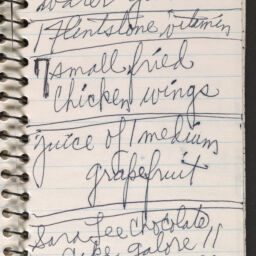 1 flintstone vitamin
7 small fried
chicken wings
juice of 1 medium
grapefruit
Sara Lee Chocolate
Cake galore !!